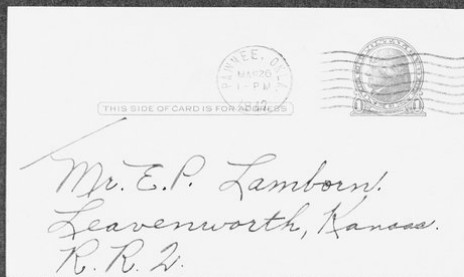 PAWNEE, OKLA.
MAR 26
1 - PM
THIS SIDE OF CARD IS FOR ADDRESS
Mr. E.P. Lamborn.
Leavenworth, Kansas.
R. R. 2.